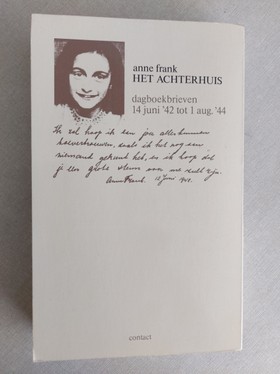 anne frank
HET ACHTERHUIS
dagboekbrieven
14 juni '42 tot 1 aug. '44
Ik zal hoop ik aan jou alles kunnen
toevertrouwen, zoals ik het nog aan
niemand gekund heb, en ik hoop dat
je een grote steun voor me zult zijn.
Anne Frank. 12 Juni 1942.
contact